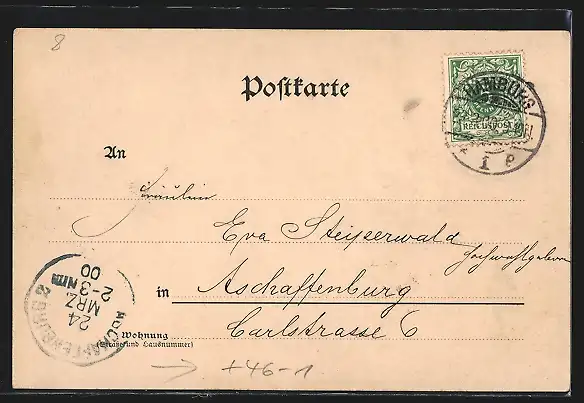 8
Postkarte
HAMBURG
REICHSPOST
1 P
An
Fräulein
Eva Steigerwald
Hochwohlgeboren
in Aschaffenburg
Carlstrasse 6
Wohnung
(Straße und Hausnummer)
ASCHAFFENBURG 2
24
MRZ
2-3 Nm
00
+46-1